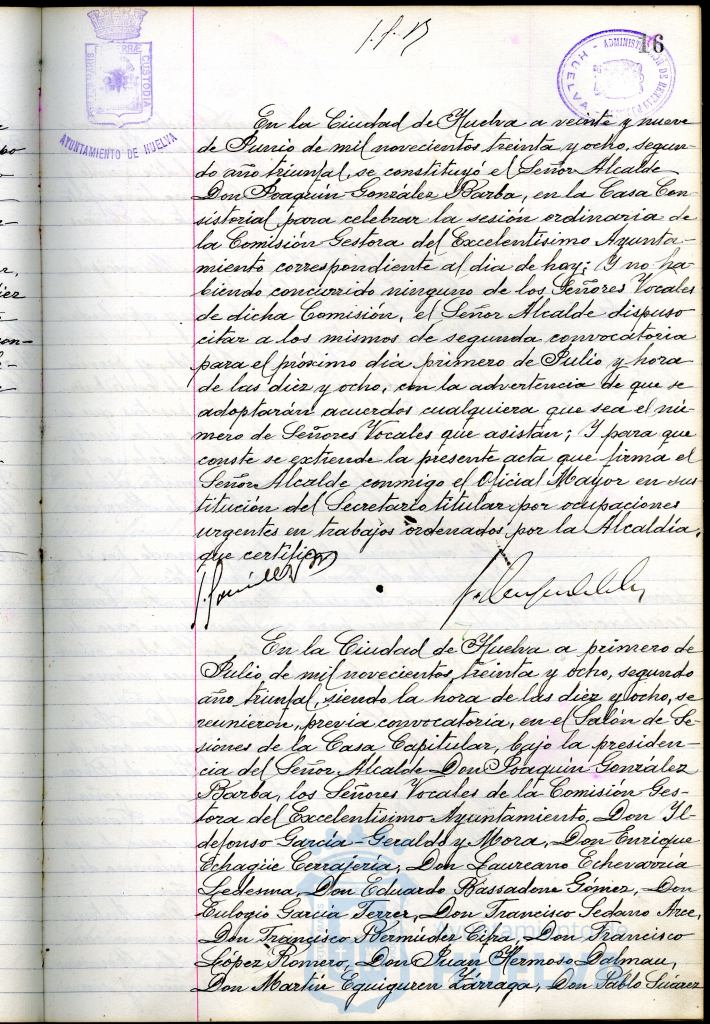 16
PORTUS MARIS ET TERRAE CUSTODIA
AYUNTAMIENTO DE HUELVA
En la Ciudad de Huelva a veinte y nueve
de Junio de mil novecientos treinta y ocho, segun-
do año triunfal, se constituyó el Señor Alcalde
Don Joaquín González Barba, en la Casa Con
sistorial para celebrar la sesión ordinaria de
la Comisión Gestora del Excelentísimo Ayunta-
miento correspondiente al día de hoy; Y no ha-
biendo concurrido ninguno de los Señores Vocales
de dicha Comisión, el Señor Alcalde dispuso
citar a los mismos de segunda convocatoria
para el próximo día primero de Julio y hora
de las diez y ocho, con la advertencia de que se
adoptarán acuerdos cualquiera que sea el nú-
mero de Señores Vocales que asistan; Y para que
conste se extiende la presente acta que firma el
Señor Alcalde conmigo el Oficial Mayor en sus
titución del Secretario titular por ocupaciones
urgentes en trabajos ordenados por la Alcaldía,
que certifico.
En la Ciudad de Huelva a primero de
Julio de mil novecientos treinta y ocho, segundo
año triunfal, siendo la hora de las diez y ocho, se
reunieron, previa convocatoria, en el Salón de Se-
siones de la Casa Capitular, bajo la presiden-
cia del Señor Alcalde Don Joaquín González
Barba, los Señores Vocales de la Comisión Ges-
tora del Excelentísimo Ayuntamiento, Don Il
defonso García-Geraldo y Mora, Don Enrique
Echagüe Cerrajería, Don Laureano Echevarría
Ledesma, Don Eduardo Bassadone Gómez, Don
Eulogio García Ferrer, Don Francisco Sedano Arce,
Don Francisco Bermúdez Cipa, Don Francisco
López Romero, Don Juan Hermoso Dalmau,
Don Martín Eguiguren Zárraga, Don Pablo Suárez
Ayuntamiento de
HUELVA